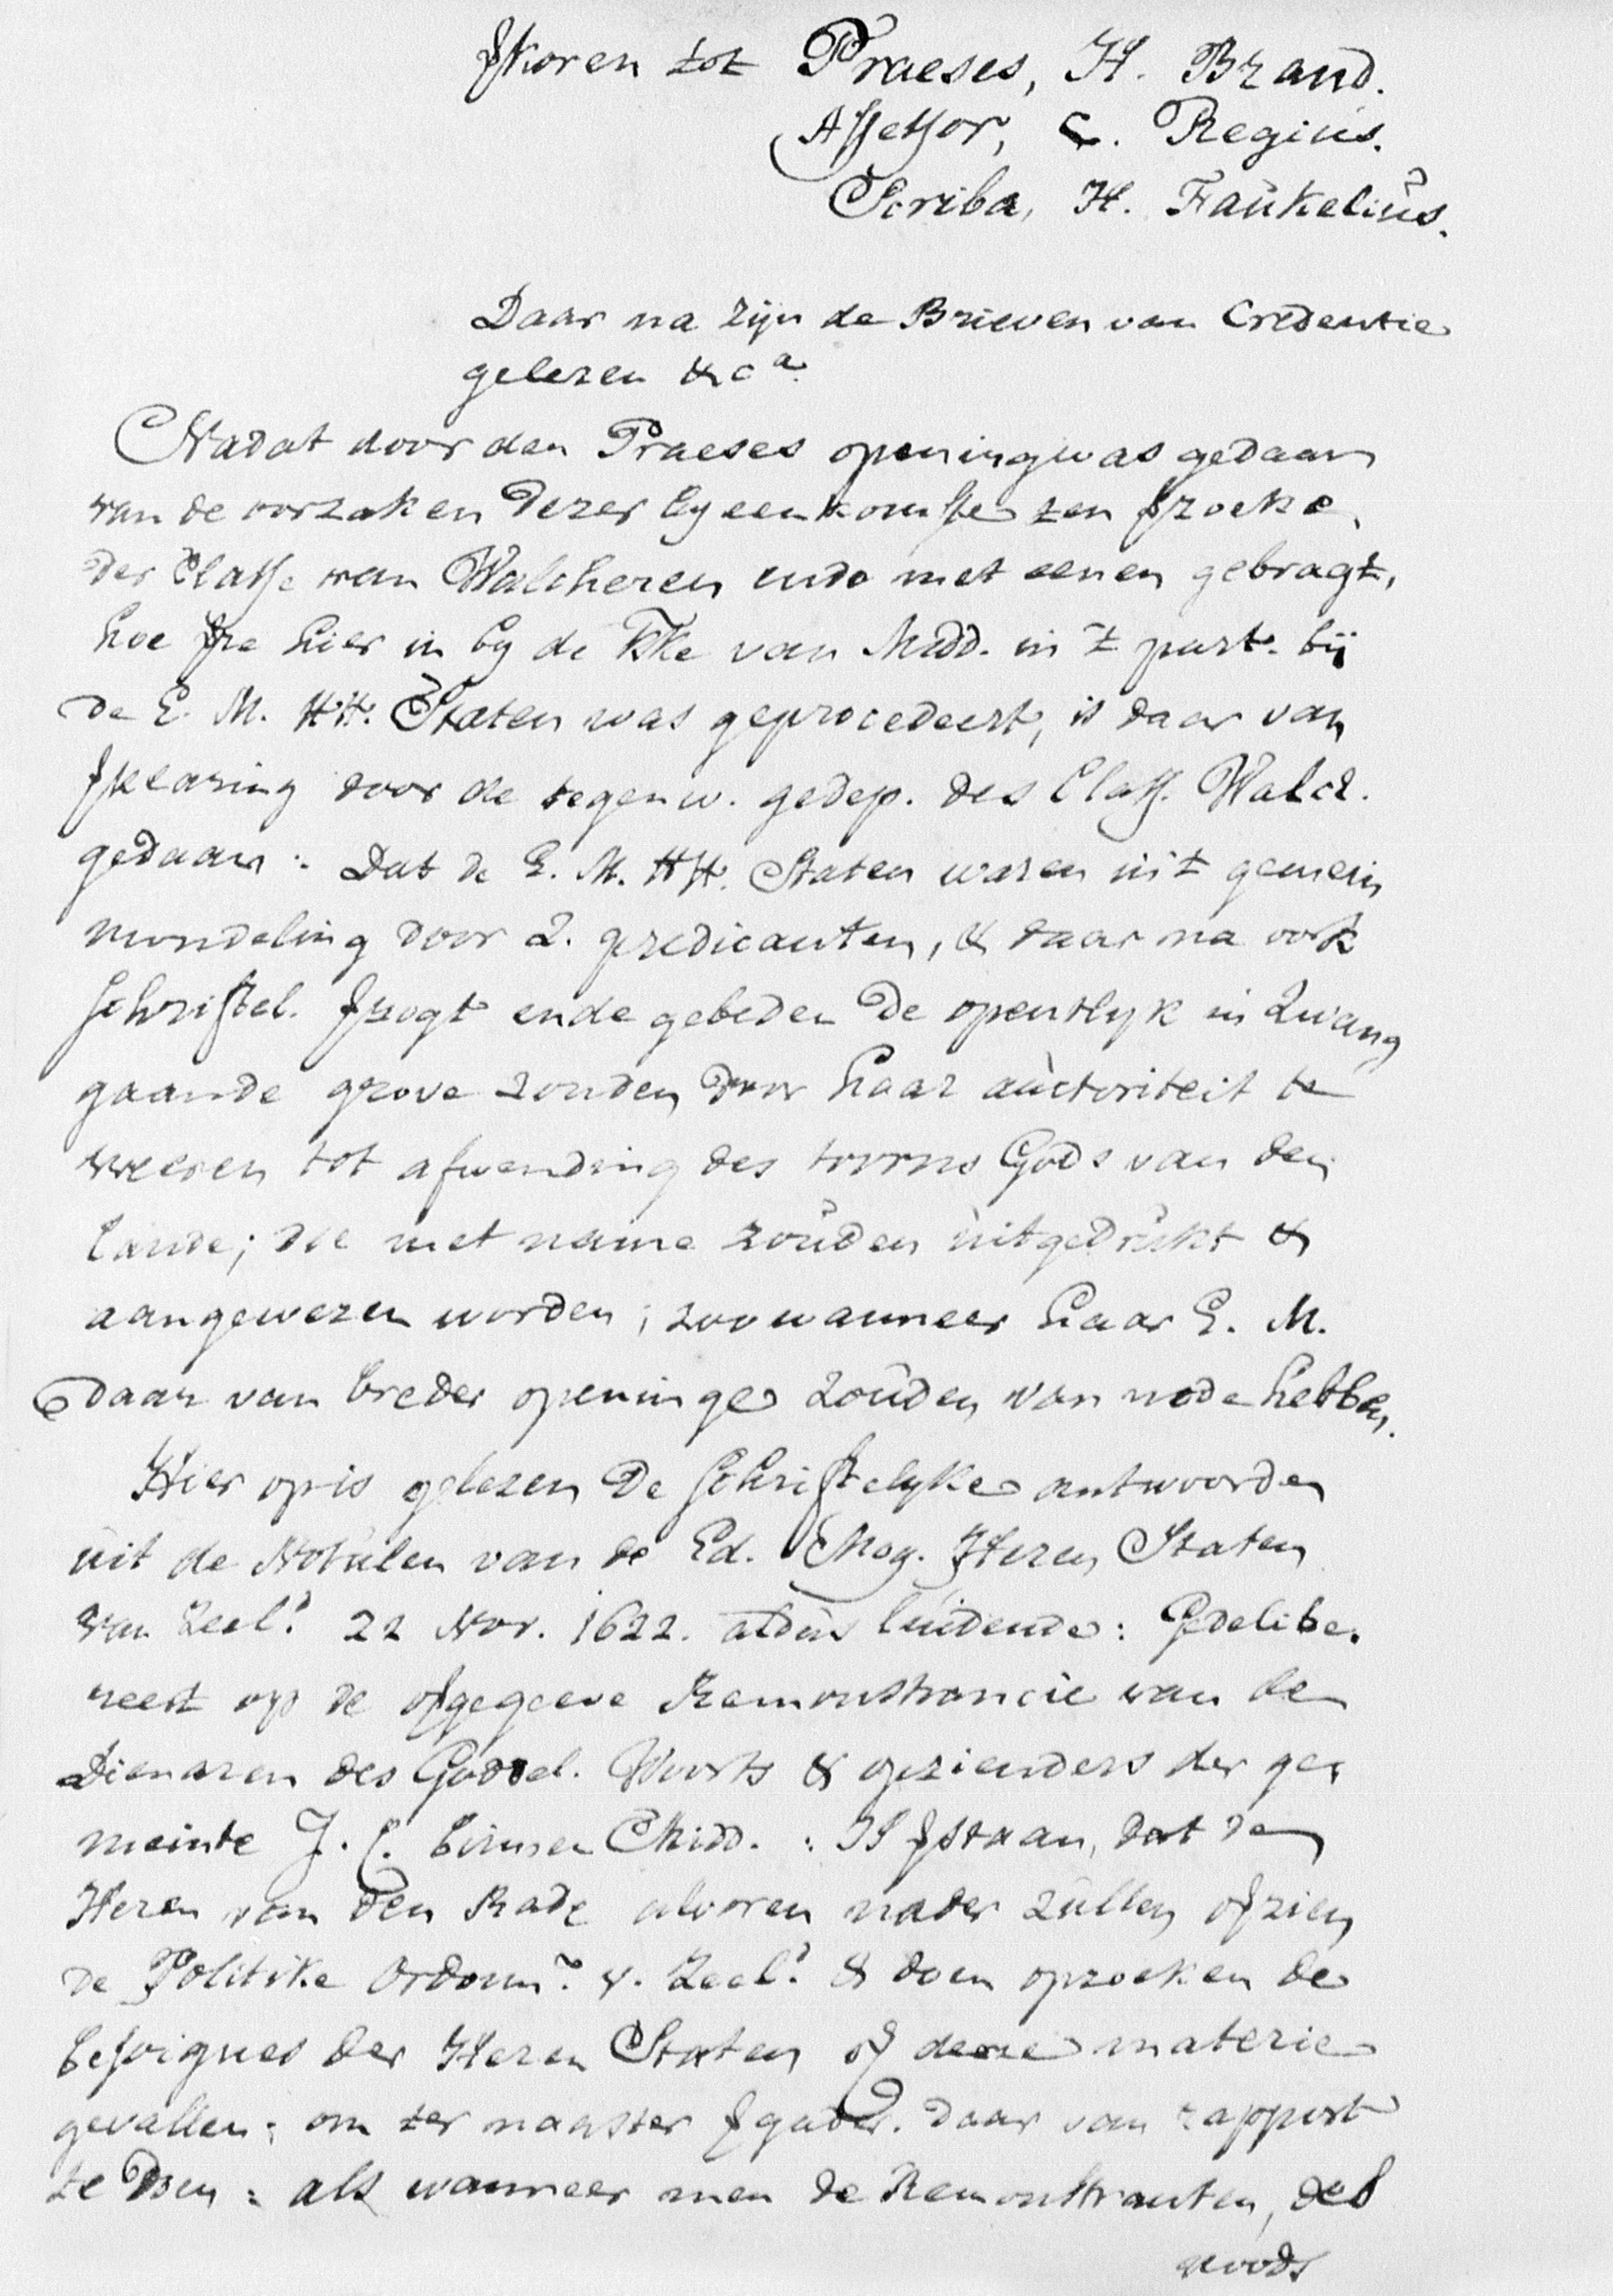 fkoren tot Praeses, H. Brand.
Assessor, C. Regius.
Scriba, H. Faukelius.
Daar na zijn de Brieven van Credentie
gelezen &ca.
Nadat door den Praeses opening was gedaan
van de oorzaken dezer byeenkomste ten fzoeke
der Classe van Walcheren ende met eenen gebragt,
hoe fre hier in by de KKe van Midd. in 't part. bij
de E. M. HH. Staten was geprocedeert, is daar van
fklaring door de tegenw. gedep. des Class. Walch.
gedaan: Dat de E. M. HH. Staten waren in 't gemein
mondeling door 2. predicanten, & daar na ook
schriftel. fzogt ende gebeden de opentlyk in zwang
gaande grove zonden door haar aúctoriteit te
weeren tot afwending des toorns Gods van den
lande; die met name zouden uitgedrukt &
aangewezen worden; zoo wanneer haar E. M.
daar van breder openinge zouden van node hebben.
Hier op is gelezen de schriftelyke antwoorden
uit de Notulen van de Ed. Mog. Heren Staten
van Zeel. 22 Nov. 1622. aldus luidende: Gedelibe-
reert op de ofgegeeve Remonstrancie van de
Dienaren des Goddel. Woorts & opzienders der ge-
meinte J. C. binnen Midd.: Is fstaan, dat de
Heren van den Rade alvoren nader zullen ofzien
de Politike Ordonn. v. Zeel. & doen opzoeken de
besoignes der Heren Staten of deze materie
gevallen; om ter naaster fgader. daar van rapport
te doen: als wanneer men de Remonstranten, des
noods